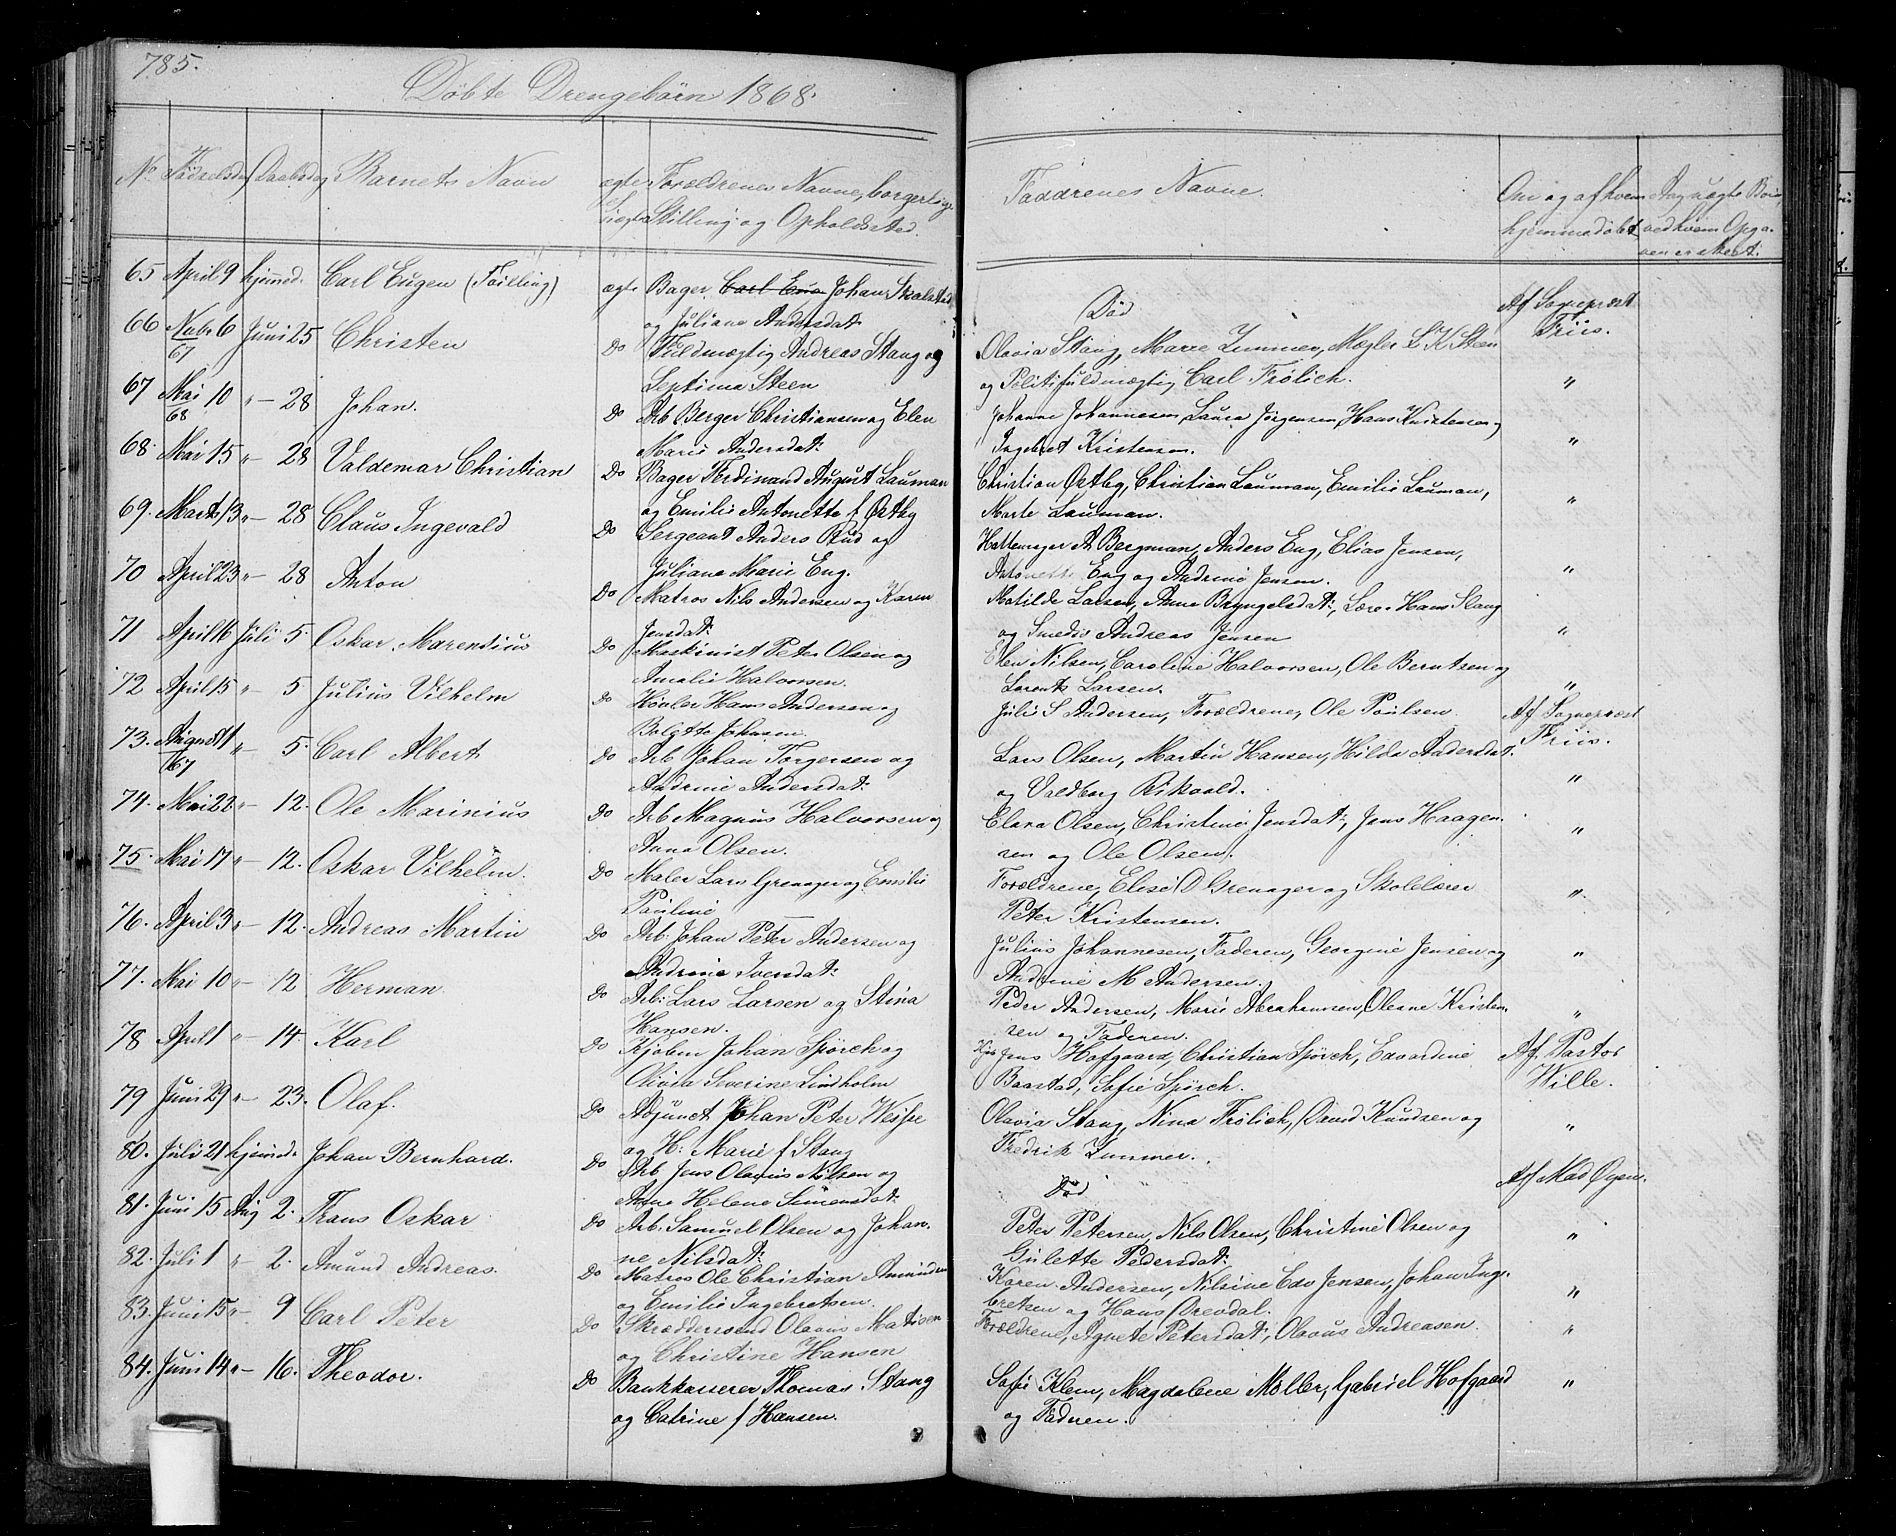 785.
Döbte Drengebörn 1868.
No Fødselsdag Daabsdag Barnets Navn ægte Forældrenes Navne, borgerlige Faddrenes Navne. Om og af hvem Ang uægte Børn
uægte Stilling og Opholdssted. hjemmedöbt ved hvem Opga-
ven er skeet.
65 April 9 hjemmed. Carl Eugen (Tvilling) ægte Bager Carl Eug Johan Skolstad Död Af Sognepræst
og Juliane Andersdat: Friis.
66 Nvbr 6 Juni 25 Christen Do Fuldmægtig Andreas Stang og Olavia Stang, Marie Zimmer, Mægler L K Steen
67 Septima Steen og Politifuldmægtig Carl Frölich. "
67 Mai 10 " - 28 Johan. Do Arb Berger Christiansen og Elen Johanne Johannesen, Laura Jørgensen, Hans Kristensen og
68 Marie Andersdat: Ingebret Kristensen. "
68. Mai 15 " - 28 Valdemar Christian Do Bager Ferdinand August Lauman Christian Østby, Christian Lauman, Emilie Lauman,
og Emilie Antonette f Østby Marte Lauman. "
69. Marts 13 " - 28 Claus Ingevald Do Sergeant Anders Rud og Hattemager A Bergman, Anders Eng, Elias Jensen,
Juliane Marie Eng. Antonette Eng og Andrine Jensen. "
70 April 23 " - 28 Anton Do Matros Nils Andersen og Karen Matilde Larsen, Anne Bryngelsdat:, Lære. Hans Slang
Jensdat: og Smedsv Andreas Jensen "
71 April 16 Juli 5. Oskar Marentius Do Maskinist Peter Olsen og Elen Nilsen, Caroline Halvorsen, Ole Berntsen og
Amalie Halvorsen. Lorents Larsen. "
72 April 15 " - 5 Julius Vilhelm Do Høvler Hans Andersen og Julie S Andersen, Forældrene, Ole Paulsen. Af Sognepræst
Bolette Johnsen. Friis.
73. August 1 " - 5. Carl Albert Do Arb Johan Torgersen og Lars Olsen, Martin Hansen, Hilda Andersdat:
67 Andrine Andersdat: og Valdborg Rikvold. "
74. Mai 22 " - 12. Ole Marinius Do Arb Magnus Halvorsen og Clara Olsen, Christine Jensdat:, Jens Haagen-
Anna Olsen. sen og Ole Olsen. "
75. Mai 17 " - 12. Oskar Vilhelm. Do Maler Lars Grenager og Emilie Forældrene, Elise D Grenager og Skolelærer
Pauline Peter Kristensen. "
76. April 3 " - 12. Andreas Martin Do Arb. Johan Peter Andersen og Julius Johannesen, Faderen, Georgine Jensen og
Andrine Iversdat: Andrine M Andersen. "
77. Mai 10 " - 12 Herman. Do Arb: Lars Larsen og Stina Peder Andersen, Marie Abrahamsen, Oleane Kristen-
Hansen. sen og Faderen. "
78 April 1 " - 14. Karl Do Kjøbm Johan Spörch og Kjøb Jens Hofgaard, Christian Spörch, Edvardine Af Pastor
Olivia Severine Lindholm Baastad, Sofie Spörch. Wille.
79 Juni 29 " - 23. Olaf. Do Adjunct Johan Peter Weisse Olavia Stang, Nina Frölich, David Knudsen og
og H: Marie f Stang Fredrik Zimmer. "
80. Juli 21 hjemmed. Johan Bernhard. Do Arb Jens Olavus Nilsen og Död Af Mad Øgen.
Anne Helene Simensdat:
81. Juni 15 Aug 2. Frans Oskar Do Arb. Samuel Olsen og Johan- Peter Petersen, Nils Olsen, Christine Olsen og "
ne Nilsdat: Gulette Pedersdat:
82. Juli 1 " - 2. Amund Andreas. Do Matros Ole Christian Amundsen Karen Andersen, Nilsine Edv Jensen, Johan Inge-
og Emilie Ingebretsen. bretsen og Hans Ørevdal. "
83. Juni 15 " - 9 Carl Peter Do Skræddersvend Olavus Matisen Forældrene, Agnete Petersdat:, Olavus Andreasen. "
og Christine Hansen
84. Juni 14 " - 16. Theodor. Do Bankkasserer Thomas Stang Sofie Klem, Magdalene Møller, Gabriel Hofgaard "
og Catrine f Hansen. og Faderen.